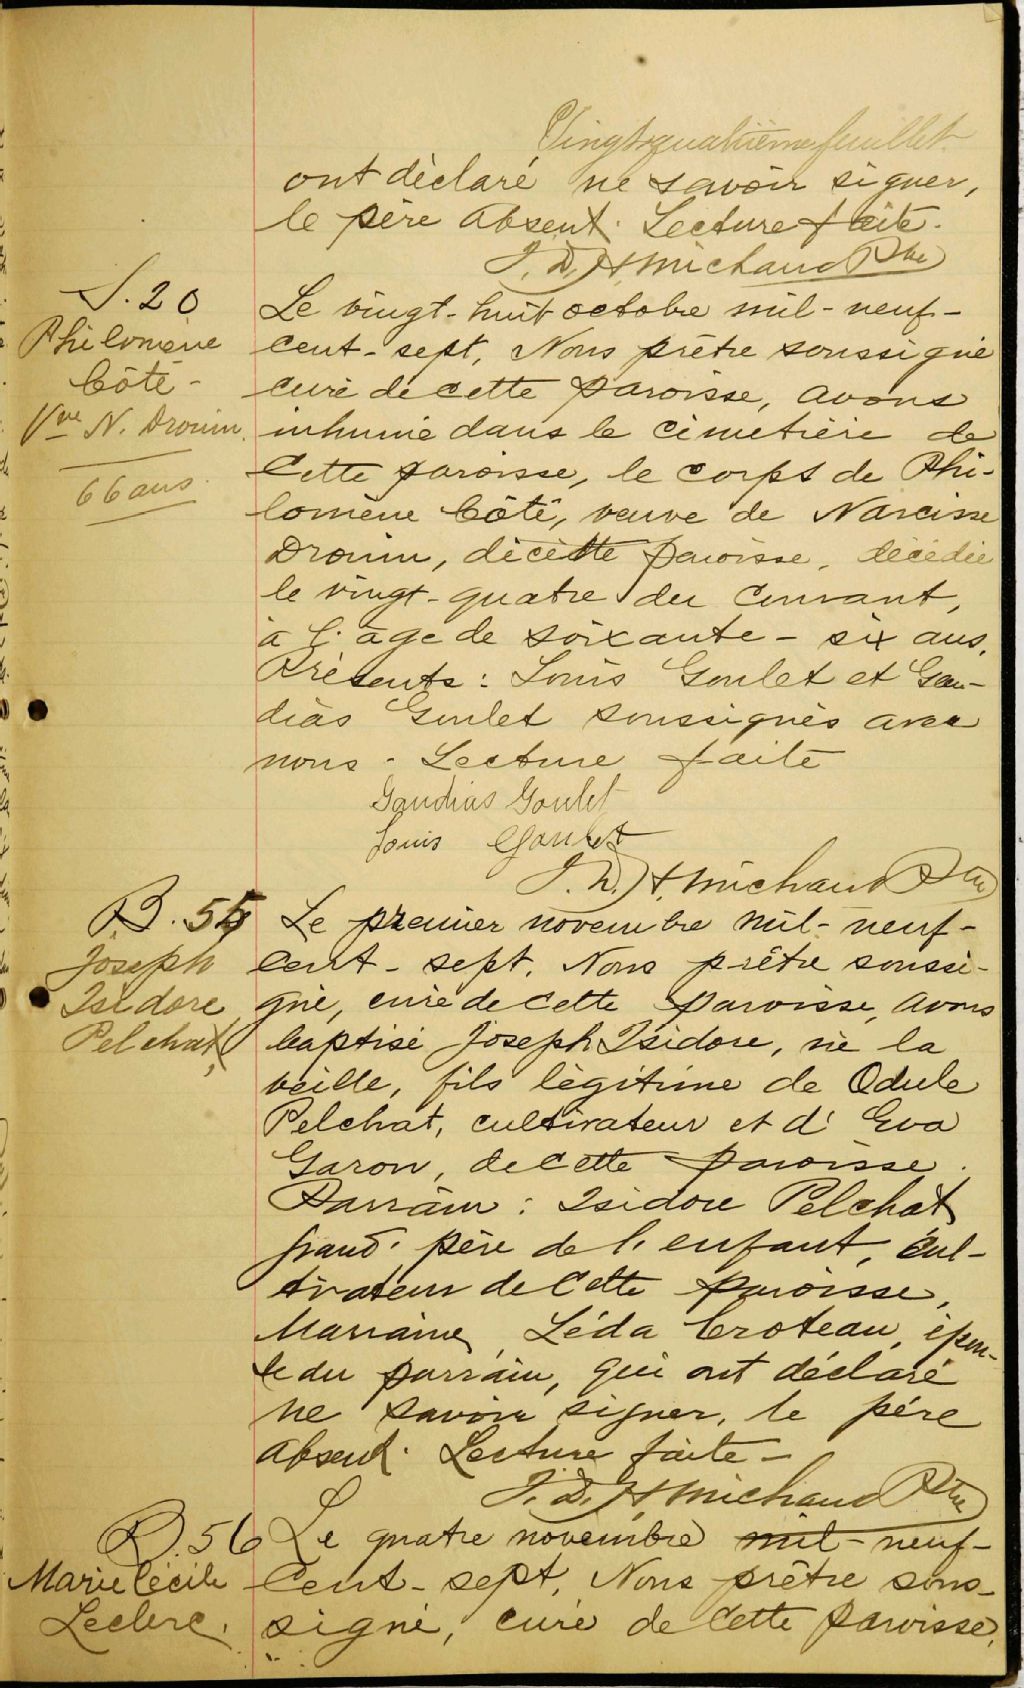 Vingt-quatrième feuillet.
ont déclaré ne savoir signer,
le père absent. Lecture faite.
J. D. H. Michaud Ptre
S. 20
Philomène
Côté -
Vve N. Drouin.
66 ans.
Le vingt-huit octobre mil-neuf-
cent-sept, Nous prêtre soussigné
curé de cette paroisse, avons
inhumé dans le cimetière de
cette paroisse, le corps de Phi-
lomène Côté, veuve de Narcisse
Drouin, de cette paroisse, décédée
le vingt-quatre du courant,
à l'âge de soixante-six ans.
Présents : Louis Goulet et Gau-
dias Goulet soussignés avec
nous - Lecture faite
Gaudias Goulet
Louis Goulet
J. D. H. Michaud Ptre
B. 55
Joseph
Isidore
Pelchat,
Le premier novembre mil-neuf-
cent-sept, Nous prêtre soussi-
gné, curé de cette paroisse, avons
baptisé Joseph Isidore, né la
veille, fils légitime de Odule
Pelchat, cultivateur et d'Eva
Garon, de cette paroisse.
Parrain : Isidore Pelchat
grand'père de l'enfant, cul-
tivateur de cette paroisse,
Marraine, Léda Croteau, épou-
se du parrain, qui ont déclaré
ne savoir signer, le père
absent. Lecture faite -
J. D. H. Michaud Ptre
B. 56
Marie Cécile
Leclerc.
Le quatre novembre mil-neuf-
cent-sept, Nous prêtre sous-
signé, curé de cette paroisse,